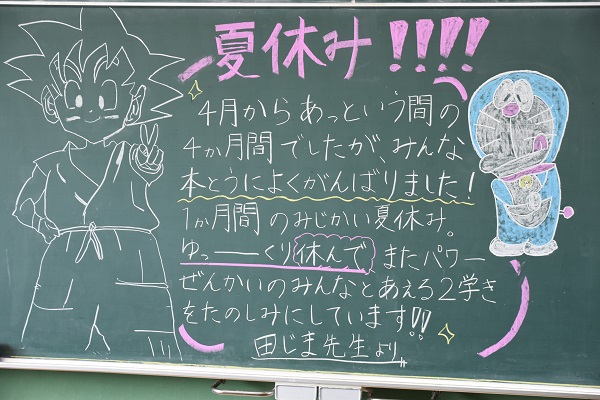 夏休み!!!!
4月からあっという間の
4か月間でしたが、みんな
本とうによくがんばりました!
1か月間のみじかい夏休み。
ゆっ――くり休んで、またパワー
ぜんかいのみんなとあえる2学き
をたのしみにしています!!
田じま先生より